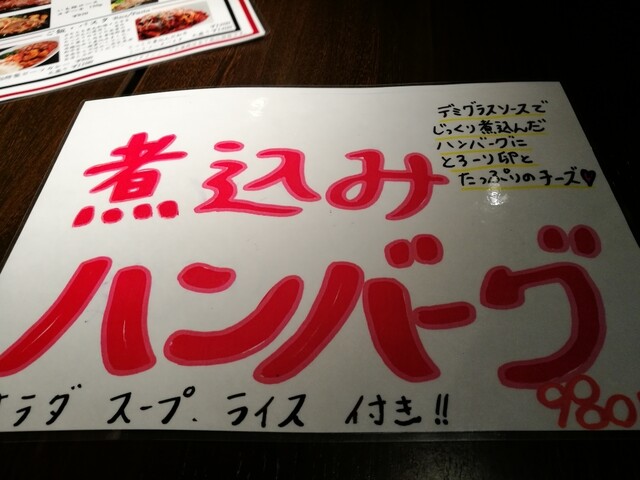 デミグラスソースで
じっくり煮込んだ
ハンバーグに
とろーり卵と
たっぷりのチーズ♥
煮込み
ハンバーグ
サラダ スープ、ライス 付き!!
980